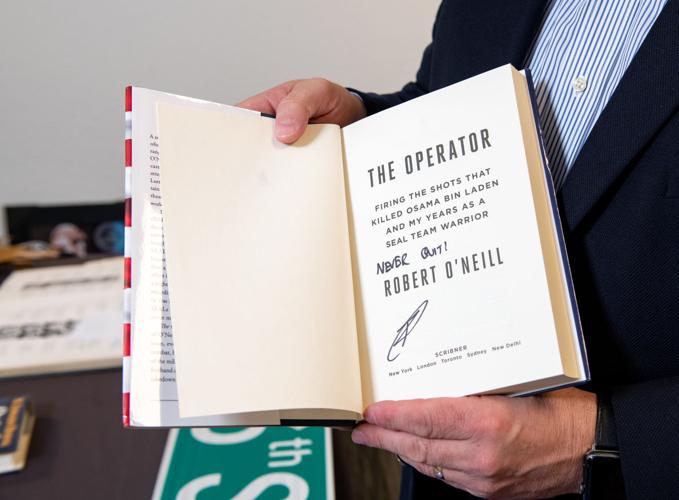 THE OPERATOR
FIRING THE SHOTS THAT
KILLED OSAMA BIN LADEN
AND MY YEARS AS A
SEAL TEAM WARRIOR
NEVER QUIT!
ROBERT O'NEILL
SCRIBNER
New York London Toronto Sydney New Delhi
th
S